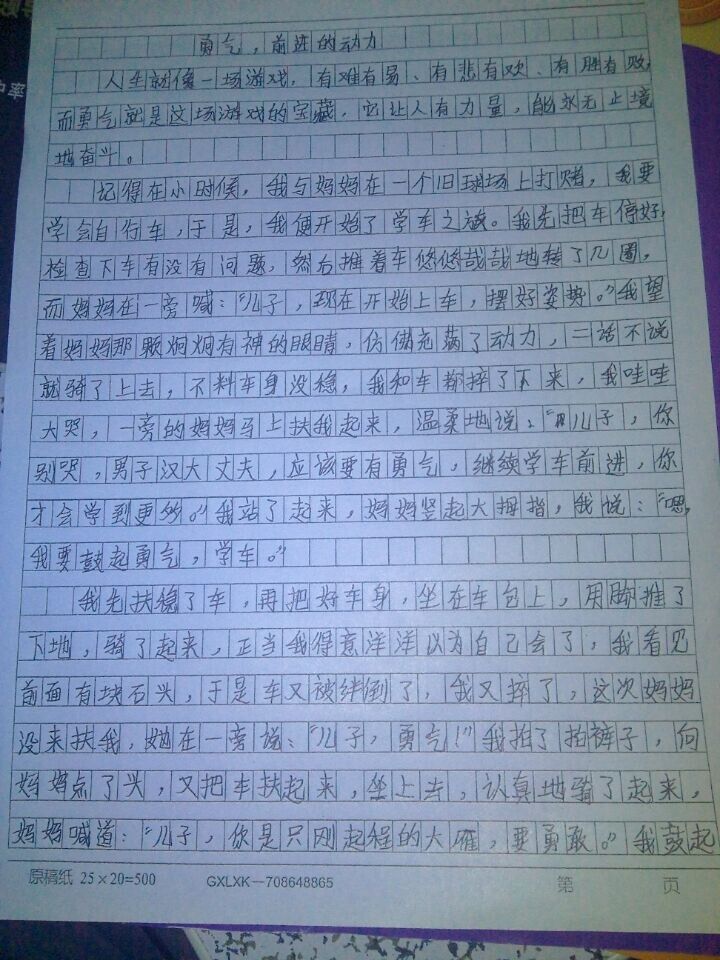 勇气，前进的动力
人生就像一场游戏，有难有易、有悲有欢、有胜有败，
而勇气就是这场游戏的宝藏，它让人有力量，能永无止境
地奋斗。
记得在小时候，我与妈妈在一个旧球场上打赌，我要
学会自行车，于是，我便开始了学车之旅。我先把车停好，
检查下车有没有问题，然后推着车悠悠哉哉地转了几圈，
而妈妈在一旁喊：“儿子，现在开始上车，摆好姿势。”我望
着妈妈那颗炯炯有神的眼睛，仿佛充满了动力，二话不说
就骑了上去，不料车身没稳，我和车都摔了下来，我哇哇
大哭，一旁的妈妈马上扶我起来，温柔地说：“儿子，你
别哭，男子汉大丈夫，应该要有勇气，继续学车前进，你
才会学到更多。”我站了起来，妈妈竖起大拇指，我说：“嗯，
我要鼓起勇气，学车。”
我先扶稳了车，再把好车身，坐在车包上，用脚推了
下地，骑了起来，正当我得意洋洋以为自己会了，我看见
前面有块石头，于是车又被绊倒了，我又摔了，这次妈妈
没来扶我，她在一旁说：“儿子，勇气！”我拍了拍裤子，向
妈妈点了头，又把车扶起来，坐上去，认真地骑了起来，
妈妈喊道：“儿子，你是只刚起程的大雁，要勇敢。”我鼓起
原稿纸 25×20=500 GXLXK—708648865 第 页
中率